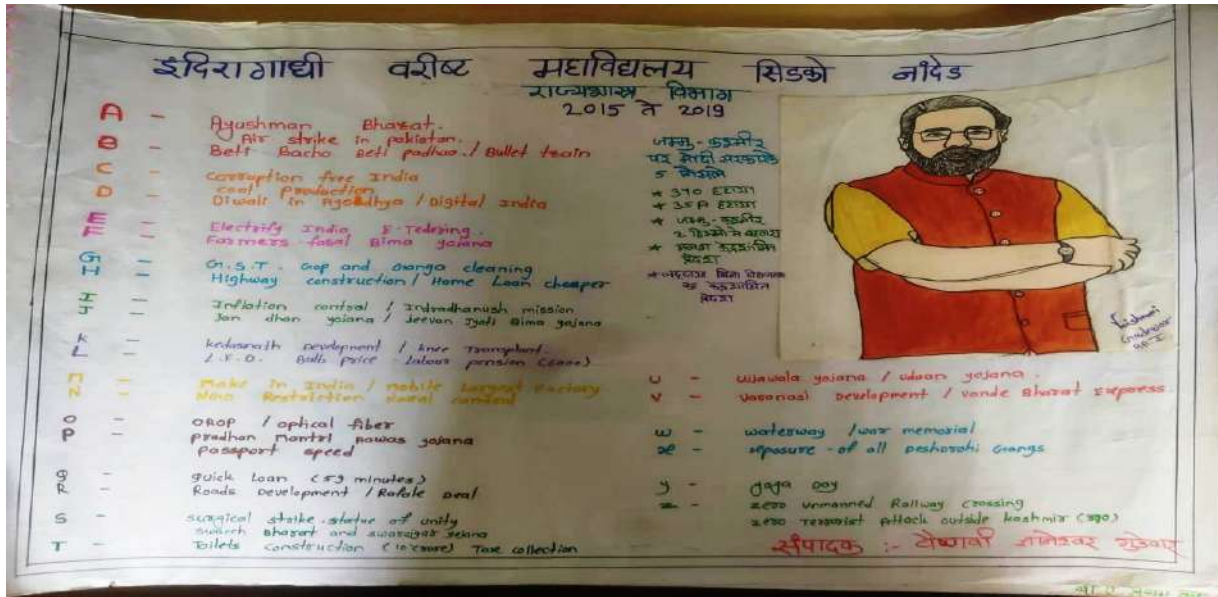 इंदिरा गांधी वरीष्ट महाविद्यालय सिडको नांदेड
राज्यशास्त्र विभाग
2015 ते 2019
A - Ayushman Bharat.
Air strike in pakistan.
B - Beti Bacho Beti padhao / Bullet train
C - Corruption free India
Coal Production
D - Diwali in Ayodhya / Digital India
E - Electrify India E-Tedering.
F - Farmers fasal Bima yojana
G - G.S.T. Gap and Ganga cleaning
H - Highway construction / Home Loan cheaper
I - Inflation control / Indradhanush mission
J - Jan dhan yojana / Jeevan Jyoti Bima yojana
K - kedarnath Development / knee Transplant.
L - L.E.D. Bulb price - labour pension
M - Make in India / mobile Largest factory
N - Restriction
O - OROP / optical fiber
P - pradhan Mantri Aawas yojana
passport speed
Q - quick Loan (59 minutes)
R - Roads Development / Rafale Deal
S - surgical strike. statue of unity
swacch Bharat and yojana
T - Toilets construction (10 crore) Tax collection
जम्मु-कश्मीर
पर मोदी सरकारके
5 फैसले
* 370 हटाया
* 35A हटाया
* जम्मु-कश्मीर
2 हिस्सो मे
*
प्रदेश
* बिना
प्रदेश
U - ujawala yojana / udaan yojana.
V - Varanasi Development / vande Bharat Express.
W - waterway / war memorial
x - xposure - of all Deshdrohi Gangs
y - yoga Day
z - zero unmanned Railway Crossing
zero Terrorist Attack outside kashmir
संपादक :- वैष्णवी ज्ञानेश्वर